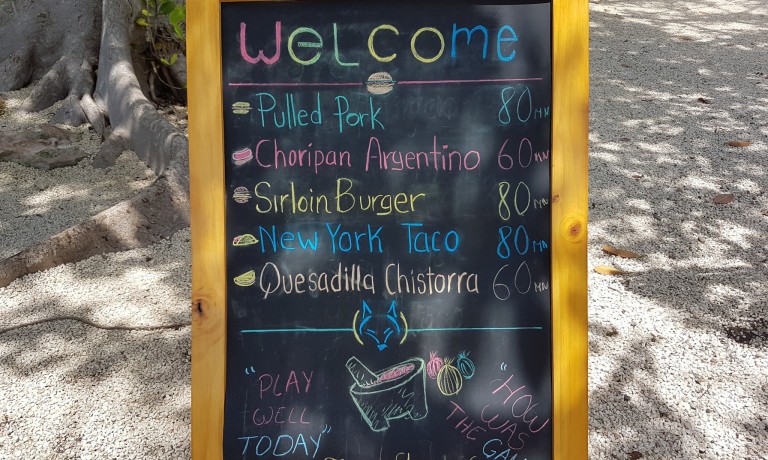 WELCOME
Pulled Pork 80 MN
Choripan Argentino 60 MN
Sirloin Burger 80 MN
New York Taco 80 MN
Quesadilla Chistorra 60 MN
"PLAY
WELL
TODAY"
"HOW
WAS
THE